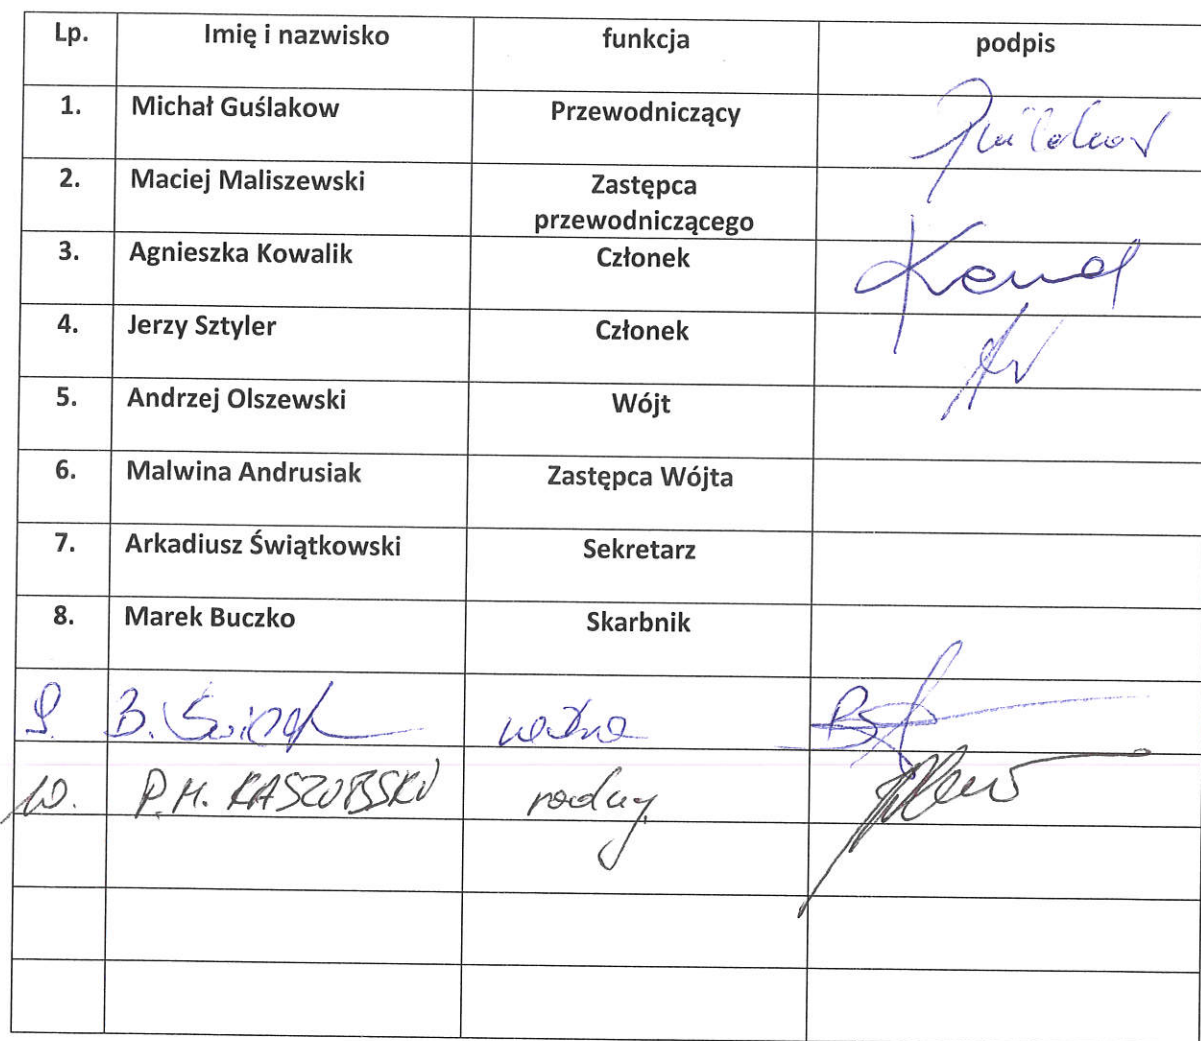 Lp. Imię i nazwisko funkcja podpis
1. Michał Guślakow Przewodniczący
2. Maciej Maliszewski Zastępca
przewodniczącego
3. Agnieszka Kowalik Członek
4. Jerzy Sztyler Członek
5. Andrzej Olszewski Wójt
6. Malwina Andrusiak Zastępca Wójta
7. Arkadiusz Świątkowski Sekretarz
8. Marek Buczko Skarbnik
9. B. radna
10. P.M. KASZUBSKI radny